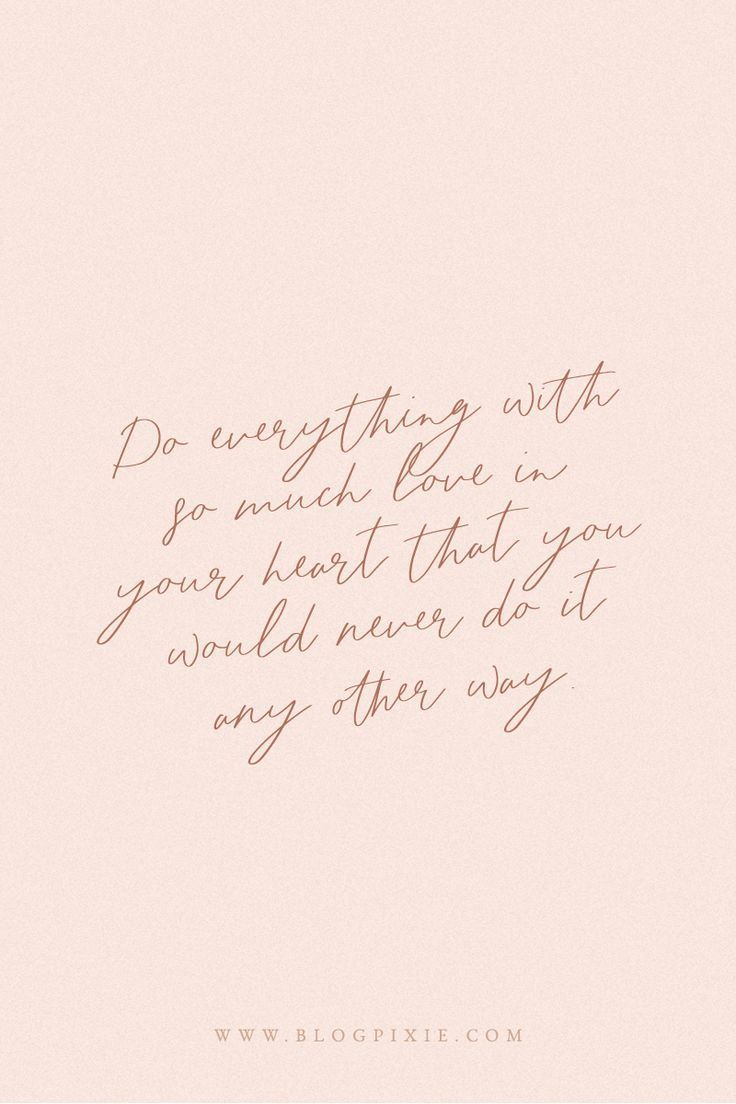 Do everything with
so much love in
your heart that you
would never do it
any other way.
WWW.BLOGPIXIE.COM